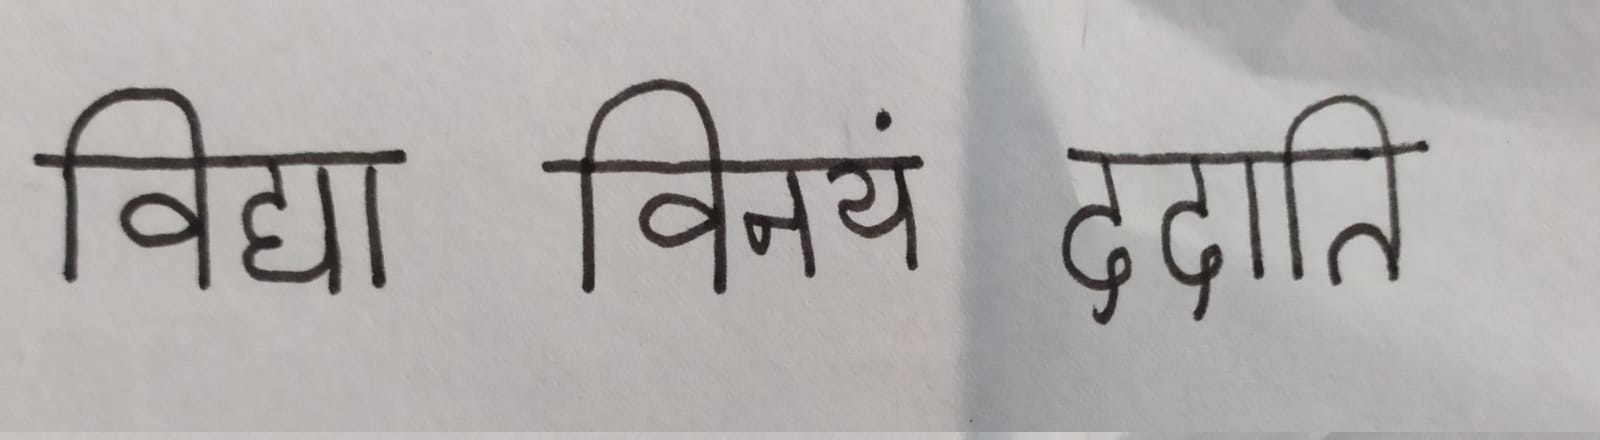 विद्या विनयं ददाति